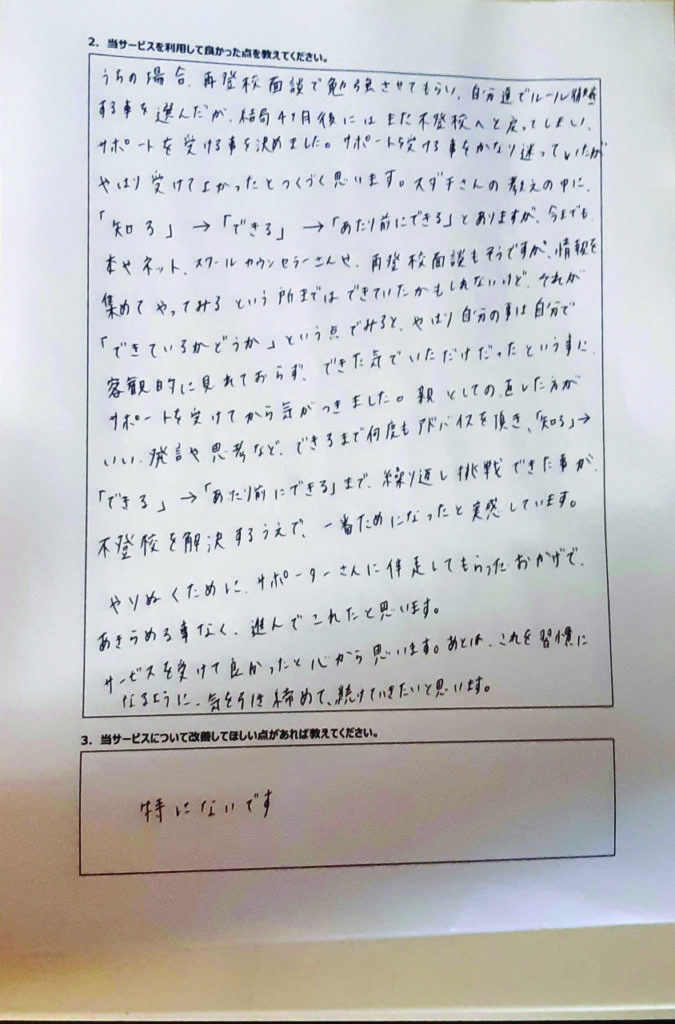 2. 当サービスを利用して良かった点を教えてください。
うちの場合、再登校面談で勉強させてもらい、自分達でルール
する事を選んだが、結局4ヶ月後にはまた不登校へと戻ってしまい、
サポートを受ける事を決めました。サポートを受ける事をかなり迷っていたが
やはり受けてよかったとつくづく思います。スダチさんの教えの中に、
「知る」→「できる」→「あたり前にできる」とありますが、今までも
本やネット、スクールカウンセラーさんや、再登校面談もそうですが、情報を
集めてやってみるという所まではできていたかもしれないけど、それが
「できているかどうか」という点でみると、やはり自分の事は自分で
客観的に見れておらず、できた気でいただけだったという事に、
サポートを受けてから気がつきました。親としての、直した方が
いい、発言や思考など、できるまで何度もアドバイスを頂き、「知る」→
「できる」→「あたり前にできる」まで、繰り返し挑戦できた事が、
不登校を解決するうえで、一番ためになったと実感しています。
やりぬくために、サポーターさんに伴走してもらったおかげで、
あきらめる事なく、進んでこれたと思います。
サービスを受けて良かったと心から思います。あとは、これを習慣に
なるように、気を引き締めて、続けていきたいと思います。
3. 当サービスについて改善してほしい点があれば教えてください。
特にないです